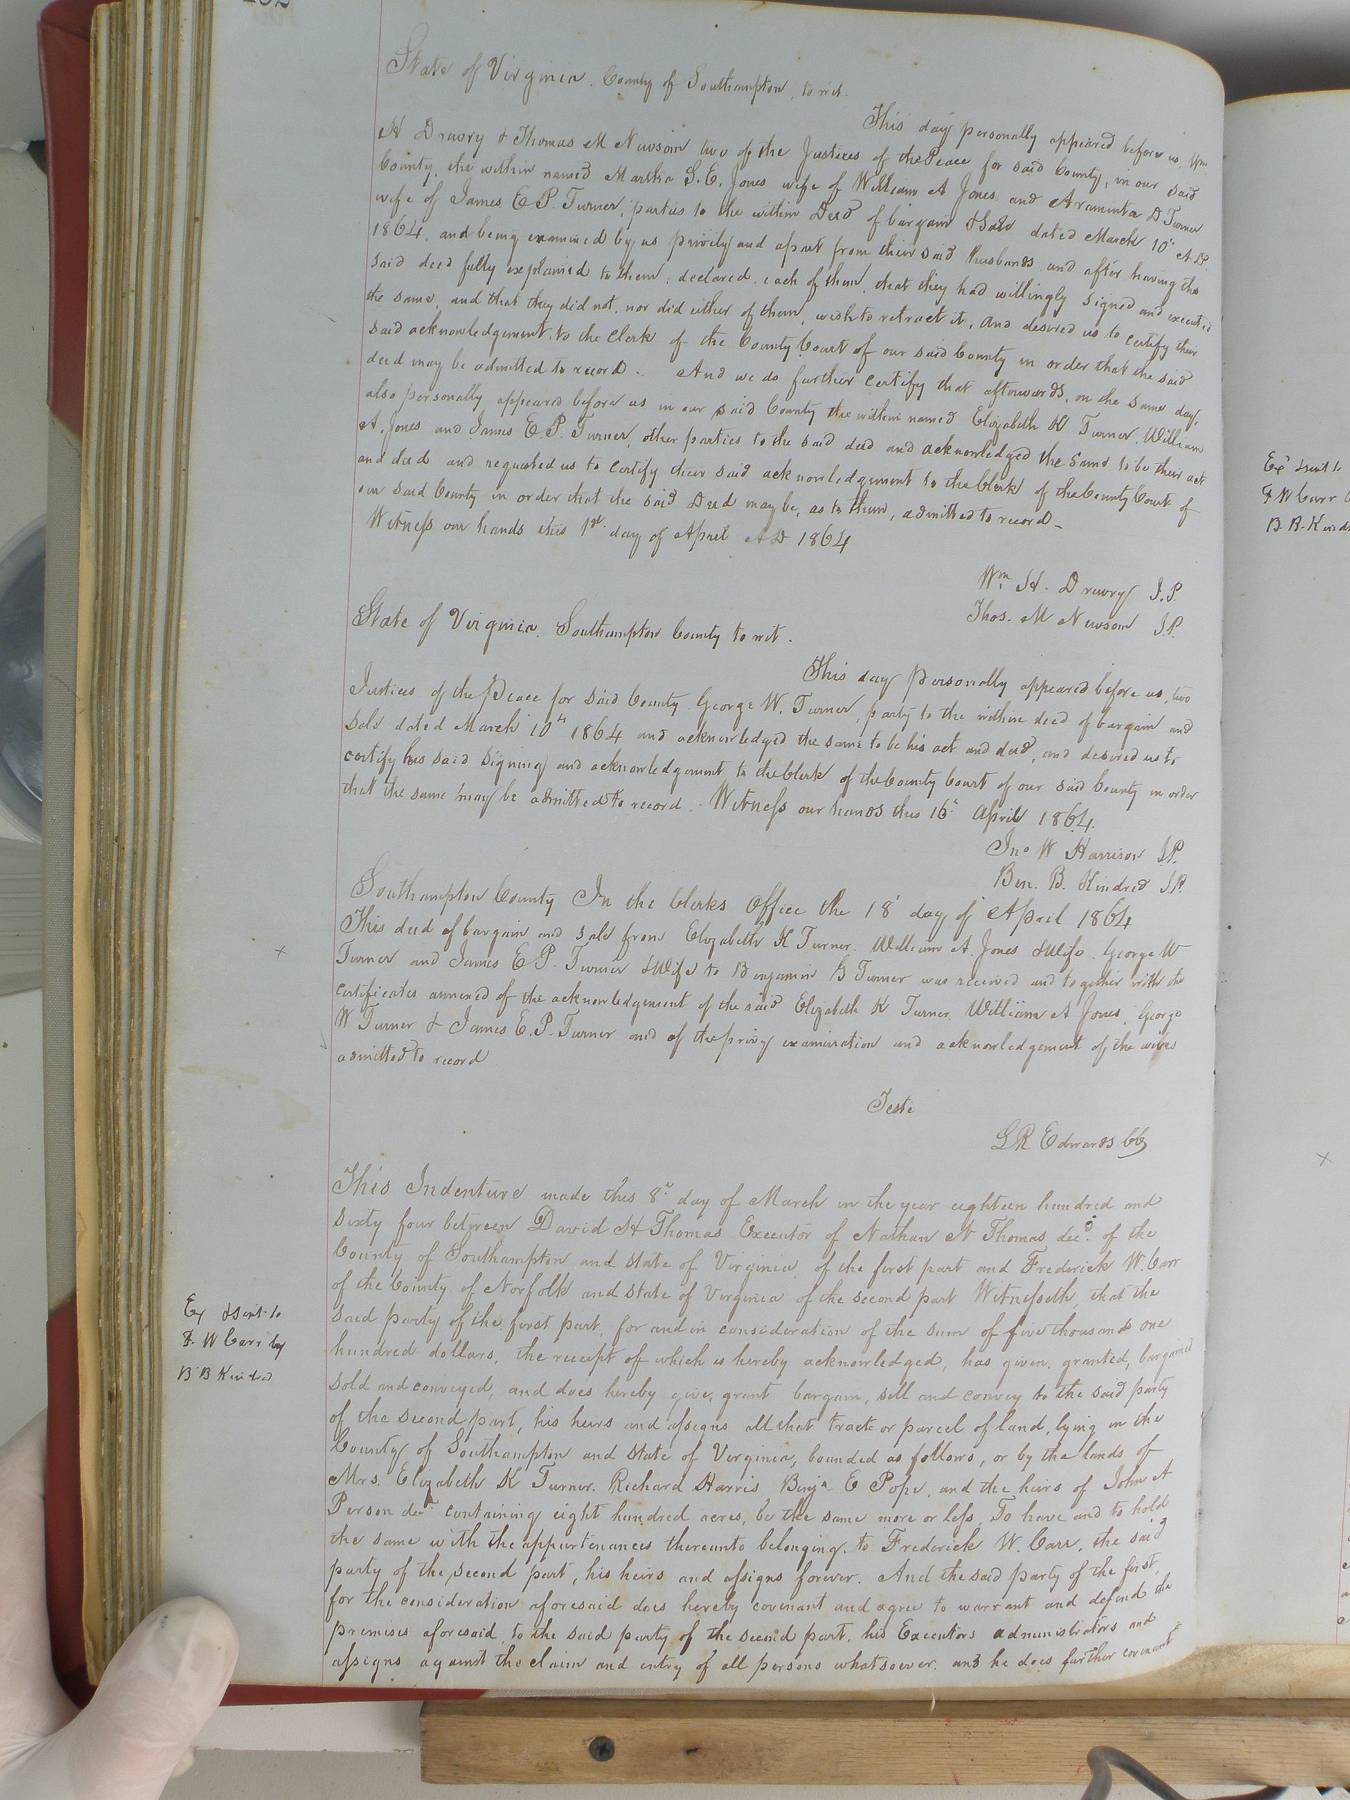 State of Virginia. County of Southampton, to wit.
This day personally appeared before us, Wm
H Drewry & Thomas M Newsom two of the Justices of the Peace for said County, in our said
County, the within named Martha S. E. Jones wife of William A Jones and Araminta D Turner
wife of James E P. Turner, parties to the within Deed of bargain & Sale dated March 10th A.D.
1864, and being examined by us privily and apart from their said husbands and after having the
said deed fully explained to them, declared, each of them, that they had willingly signed and executed
the same, and that they did not, nor did either of them, wish to retract it, and desired us to certify their
said acknowledgement, to the Clerk of the County Court of our said County in order that the said
deed may be admitted to record. And we do further certify that afterwards, on the same day,
also personally appeared before us in our said County the within named Elizabeth K Turner, William
A. Jones and James E P. Turner, other parties to the said deed and acknowledged the same to be their act
and deed and requested us to certify their said acknowledgement to the Clerk of the County Court of
our said County in order that the said Deed may be, as to them, admitted to record -
Witness our hands this 1st day of April AD 1864
Wm. H. Drewry J.P.
Thos. M Newsom J.P.
State of Virginia, Southampton County to wit.
This day personally appeared before us, two
Justices of the Peace for said County George W. Turner, party to the within deed of bargain and
Sale dated March 10th 1864 and acknowledged the same to be his act and deed, and desired us to
certify his said signing and acknowledgement to the Clerk of the County Court of our said County in order
that the same may be admitted to record. Witness our hands this 16th April 1864.
Jno W Harrison J.P.
Ben. B. Kindred J.P.
Southampton County In the Clerks Office the 18th day of April 1864
This deed of bargain and sale from Elizabeth K Turner. William A. Jones & Wife, George W
Turner and James E P. Turner & Wife to Benjamin G Turner was received and together with the
certificates annexed of the acknowledgement of the said Elizabeth K Turner, William A Jones, George
W Turner & James E. P. Turner and of the privy examination and acknowledgement of the wives
admitted to record
Teste
L R Edwards CC
This Indenture made this 8th day of March in the year eighteen hundred and
sixty four between David H Thomas Executor of Nathan N Thomas decd. of the
County of Southampton and state of Virginia, of the first part and Frederick W. Carr
of the County of Norfolk and state of Virginia of the second part Witnesseth, that the
said party of the first part, for and in consideration of the sum of five thousand one
hundred dollars, the receipt of which is hereby acknowledged, has given, granted, bargained
sold and conveyed, and does hereby give, grant bargain, sell and convey to the said party
of the second part, his heirs and assigns all that tract or parcel of land, lying in the
County of Southampton and state of Virginia, bounded as follows, or by the lands of
Mrs. Elizabeth K Turner. Richard Harris, Benja E Pope, and the heirs of John A
Person decd containing eight hundred acres, be the same more or less, To have and to hold
the same with the appurtenances thereunto belonging, to Frederick W. Carr, the said
party of the second part, his heirs and assigns forever. And the said party of the first,
for the consideration aforesaid does hereby covenant and agree to warrant and defend the
premises aforesaid, to the said party of the second part, his Executors administrators and
assigns against the claim and entry of all persons whatsoever. and he does further covenant
Ex & sent to
F. W Carr by
B B Kindred
Ex & sent to
F W Carr
B. B. Kind